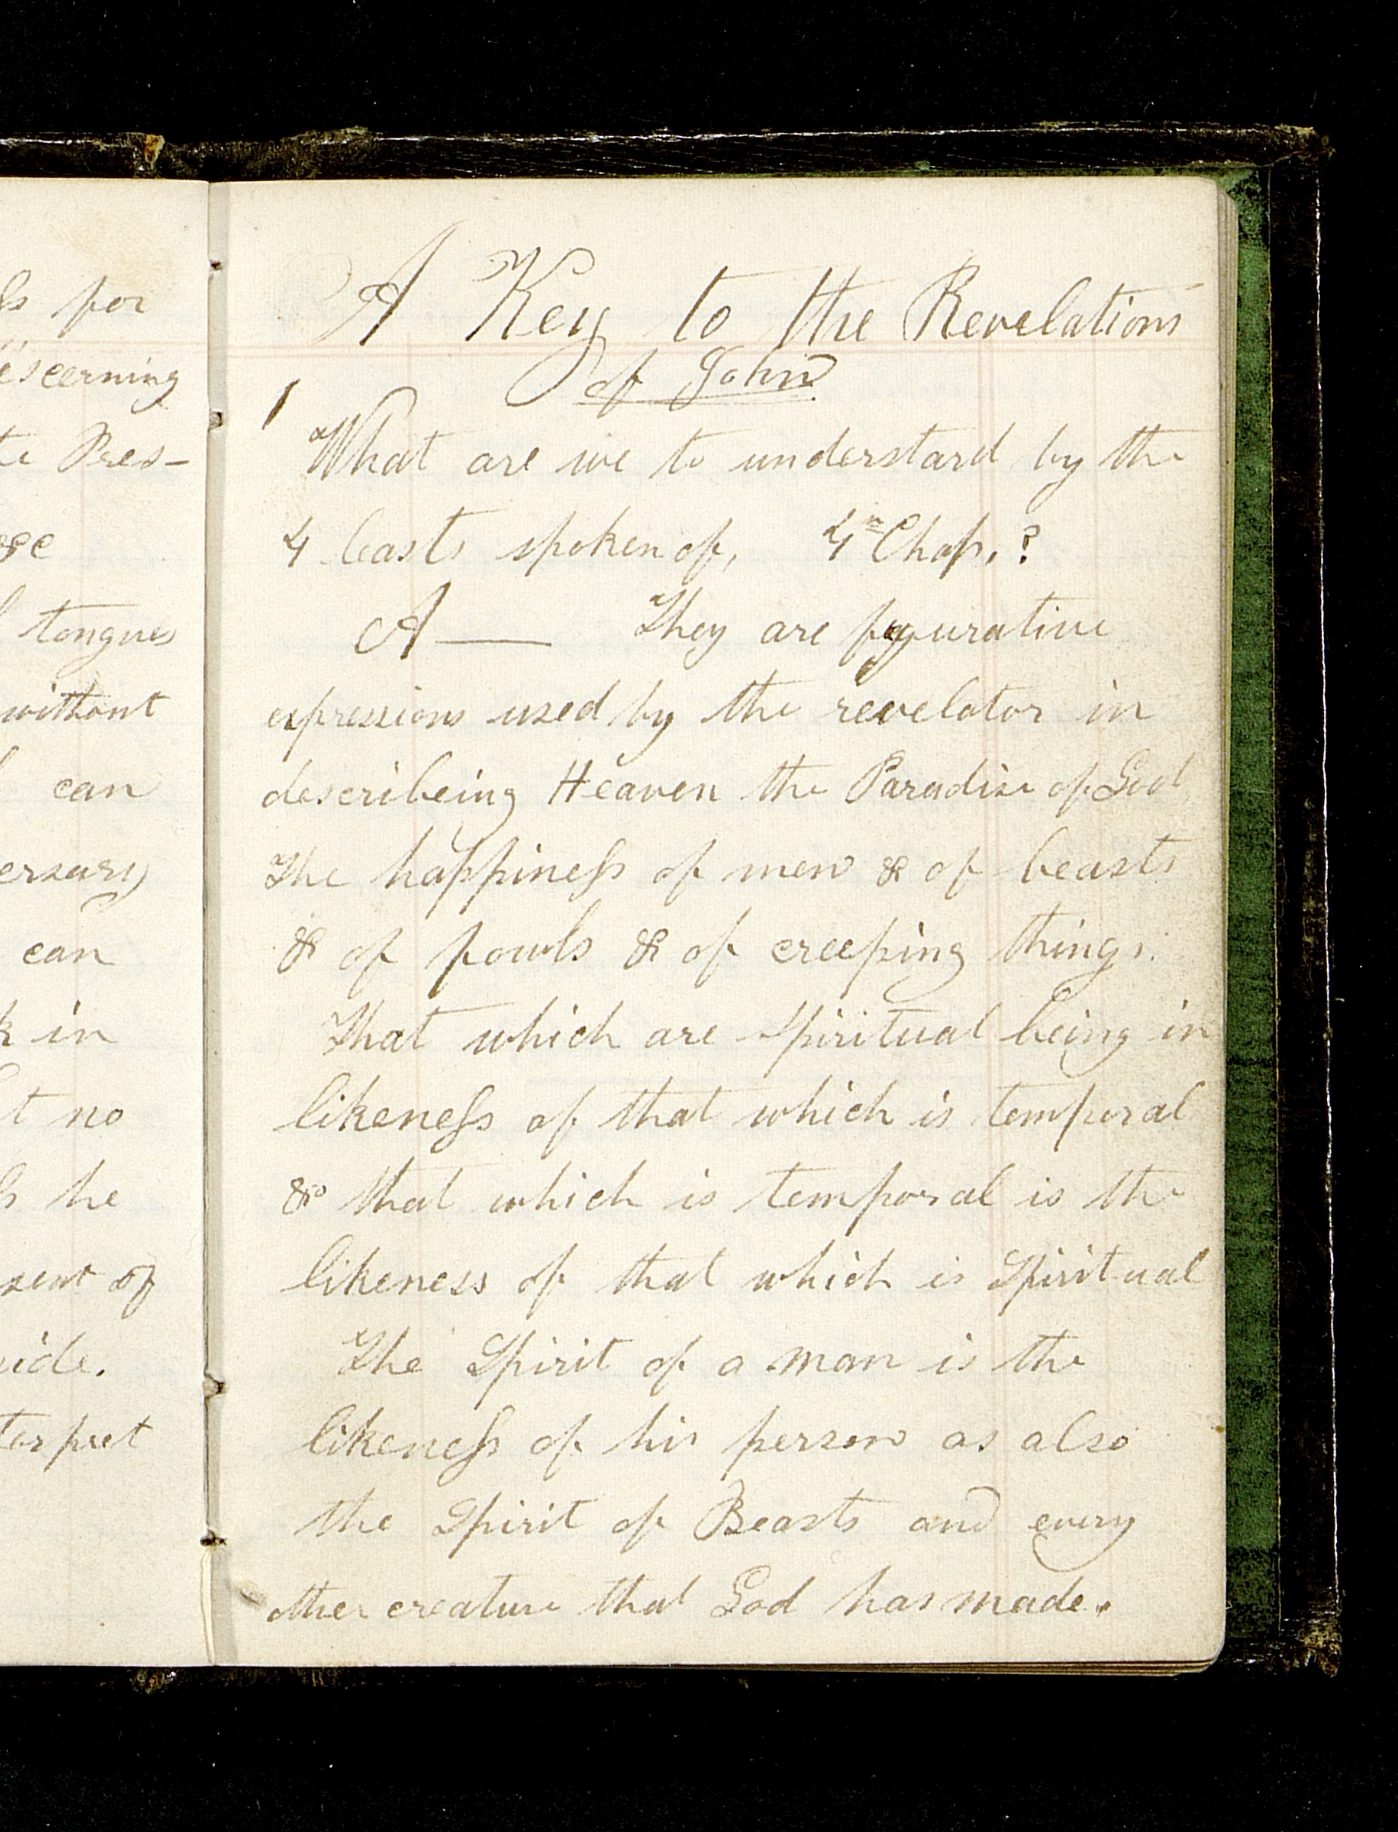 for
escerning
te Pres-
tongues
without
can
ersary
can
in
t no
he
sent of
uide.
ter pret
A Key to the Revelations
of John
1
What are we to understand by the
4 beasts spoken of, 4th Chap.?
A— They are figurative
expressions used by the revelator in
describeing Heaven the Paradise of God
The happiness of men & of beasts
& of fowls & of creeping things.
That which are Spiritual being in
likeness of that which is temporal
& that which is temporal is the
likeness of that which is Spiritual
The Spirit of a man is the
likeness of his person as also
the Spirit of Beasts and every
other creature that God has made.